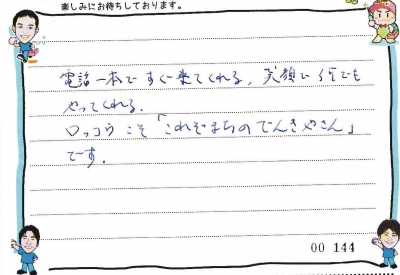 楽しみにお待ちしております。
電話一本ですぐ来てくれる，笑顔で何でも
やってくれる．
ロッコウこそ「これぞまちのでんきやさん」
です．
00 144